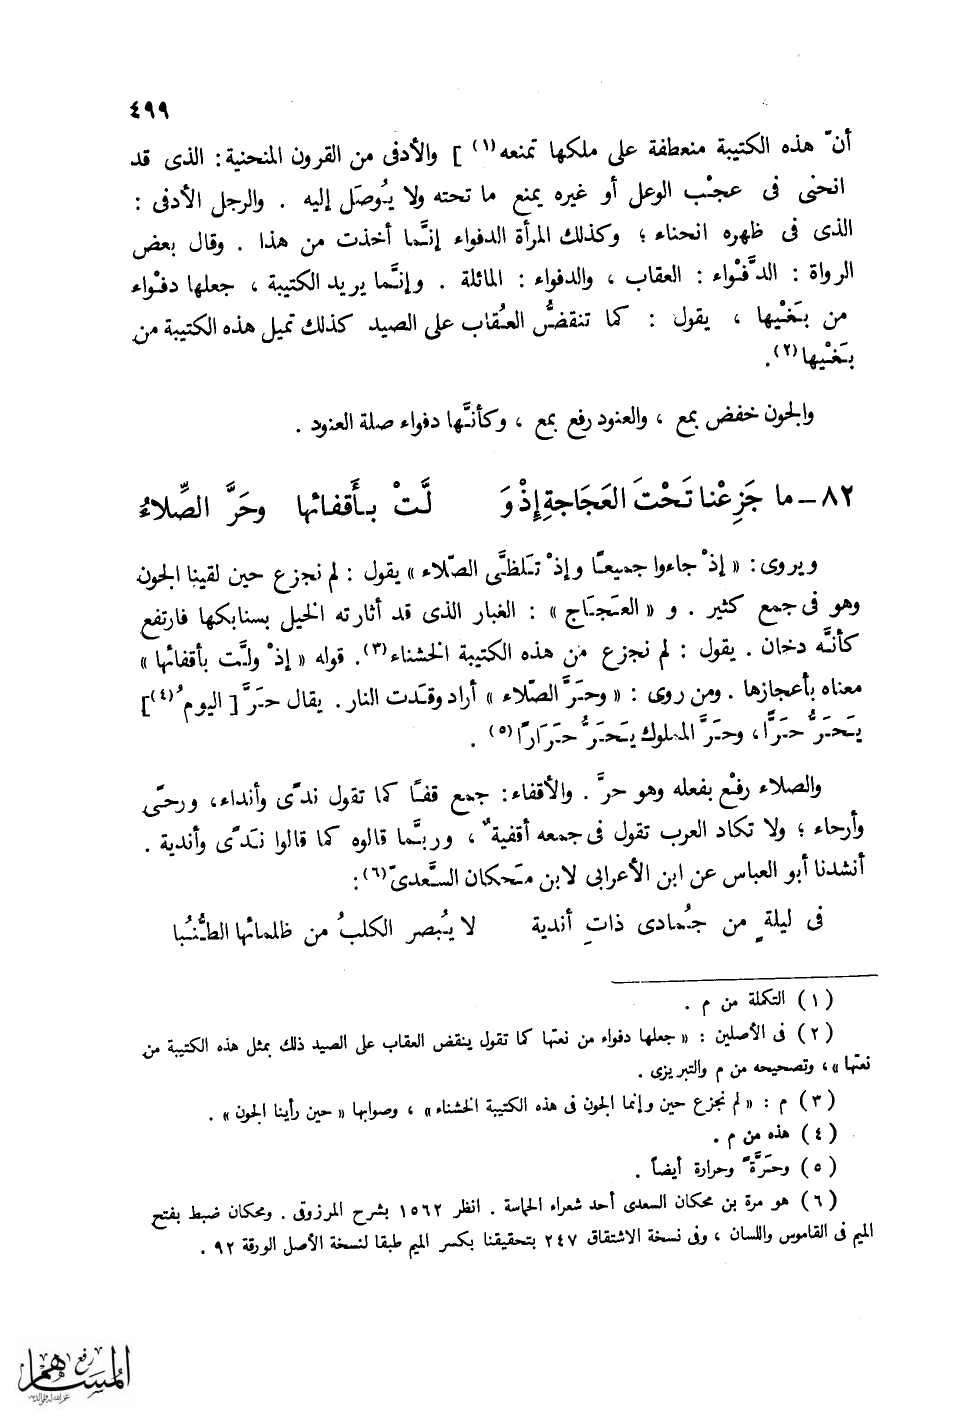 ٤٩٩
أنّ هذه الكتيبة منعطفة على ملكها تمنعه(١) ] والأدفى من القرون المنحنية: الذى قد
انحنى فى عجْب الوعل أو غيره يمنع ما تحته ولا يُوصَل إليه . والرجل الأدفى :
الذى فى ظهره انحناء ؛ وكذلك المرأة الدفواء إنَّما أخذت من هذا . وقال بعض
الرواة : الدَّفْواء : العقاب ، والدفواء : المائلة . وإنَّما يريد الكتيبة ، جعلها دفْواء
من بَغْيها ، يقول : كما تنقضُّ العُقاب على الصيد كذلك تميل هذه الكتيبة من
بَغْيها(٢).
والجون خفض بمع ، والعنود رفع بمع ، وكأنَّها دفواء صلة العنود .
٨٢ – ما جَزِعْنا تَحْتَ العَجَاجةِ إذْ وَ لَّتْ بأَقفائها وحَرَّ الصِّلاءُ
ويروى: « إذْ جاءوا جميعًا وإذْ تَلظَّى الصّلاء » يقول : لم نجزع حين لقينا الجون
وهو فى جمع كثير . و « العَجَاج » : الغبار الذى قد أثارته الخيل بسنابكها فارتفع
كأنَّه دخان . يقول : لم نجزع من هذه الكتيبة الخشناء(٣). قوله « إذْ ولَّت بأقفائها »
معناه بأعجازها . ومن روى : « وحَرَّ الصّلاء » أراد وقَدت النار. يقال حَرَّ [ اليومُ(٤)]
يَحَرُّ حَرًّا، وحَرَّ المملوك يَحَرُّ حَرَارًا(٥) .
والصلاء رفْع بفعله وهو حرَّ . والأقفاء: جمع قفًا كما تقول ندًى وأنداء، ورحًى
وأرحاء ؛ ولا تكاد العرب تقول فى جمعه أقفيةٌ ، وربَّما قالوه كما قالوا نَدًى وأندية .
أنشدنا أبو العباس عن ابن الأعرابى لابن مَحكان السَّعدىّ(٦):
فى ليلةٍ من جُمادى ذاتِ أندية لا يُبصر الكلبُ من ظلمائها الطُّنُبا
(١) التكملة من م .
(٢) فى الأصلين : « جعلها دفواء من نعتها كما تقول ينقض العقاب على الصيد ذلك بمثل هذه الكتيبة من
نعتها »، وتصحيحه من م والتبريزى .
(٣) م : « لم نجزع حين وإنما الجون فى هذه الكتيبة الخشناء » ، وصوابها « حين رأينا الجون » .
(٤) هذه من م .
(٥) وحَرَّةً وحرارة أيضاً .
(٦) هو مرة بن محكان السعدى أحد شعراء الحماسة . انظر ١٥٦٢ بشرح المرزوقى . ومحكان ضبط بفتح
الميم فى القاموس واللسان ، وفى نسخة الاشتقاق ٢٤٧ بتحقيقنا بكسر الميم طبقا لنسخة الأصل الورقة ٩٢ .
رفع
المساهم